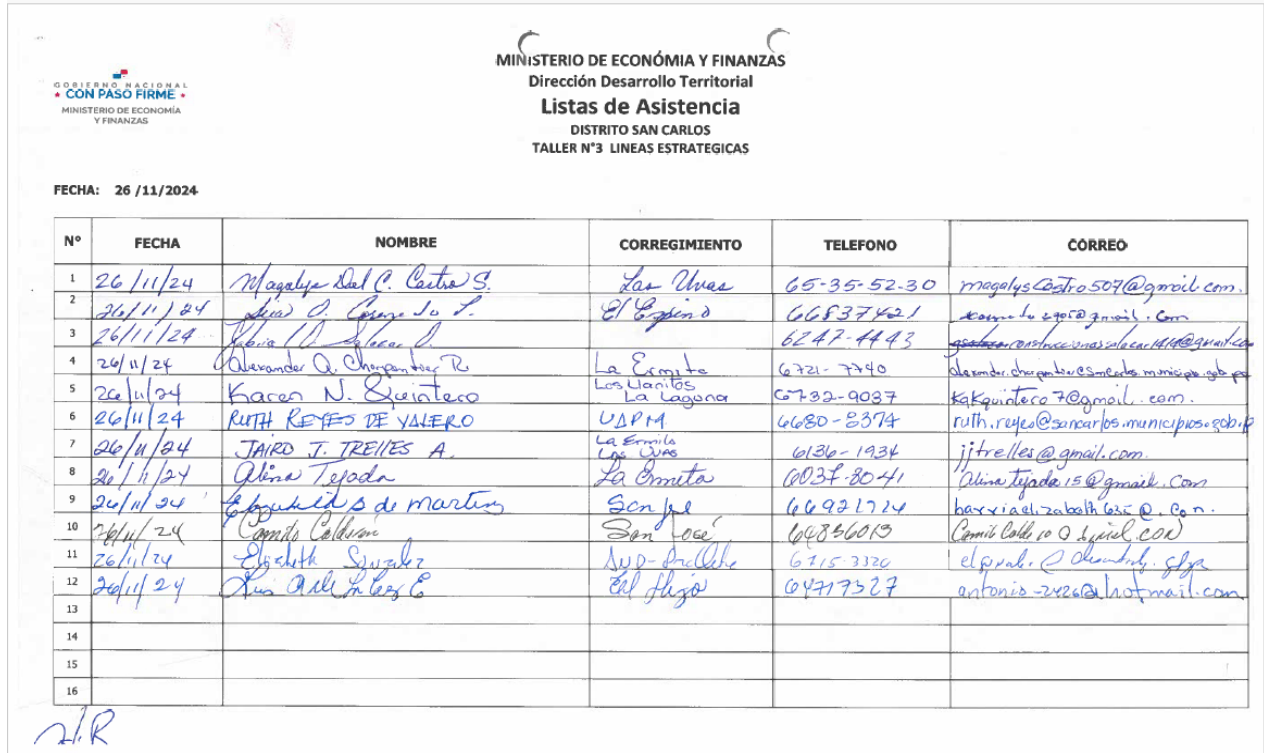 GOBIERNO NACIONAL
CON PASO FIRME
MINISTERIO DE ECONOMÍA
Y FINANZAS
MINISTERIO DE ECONÓMIA Y FINANZAS
Dirección Desarrollo Territorial
Listas de Asistencia
DISTRITO SAN CARLOS
TALLER N°3 LINEAS ESTRATEGICAS
FECHA: 26 /11/2024
N° FECHA NOMBRE CORREGIMIENTO TELEFONO CORREO
1 26/11/24 Magalys Del C. Castro S. Las Uvas 65-35-52-30 magalyscastro507@gmail.com.
2 26/11/24 El Espino 66837421
3 26/11/24 6247-4443
4 26/11/24 Alexander A. Charpentier R La Ermita 6721-7740
5 26/11/24 Karen N. Quintero Los Llanitos La Laguna 6732-9037 kakquintero7@gmail.com.
6 26/11/24 RUTH REYES DE VALERO 6680-8374 ruth.reyes@sancarlos.municipios.gob.p
7 26/11/24 JAIRO J. TRELLES A. La Ermita Las Uvas 6136-1934 jjtrelles@gmail.com.
8 26/11/24 Alina Tejada La Ermita 6037-8041 alinatejada15@gmail.com
9 26/11/24 de martinez 66921724
10 26/11/24 Camilo Calderón San José 64836013
11 26/11/24 Elizabeth González 6715-3320
12 26/11/24 Luis 64717327 antonio-2426@hotmail.com
13
14
15
16